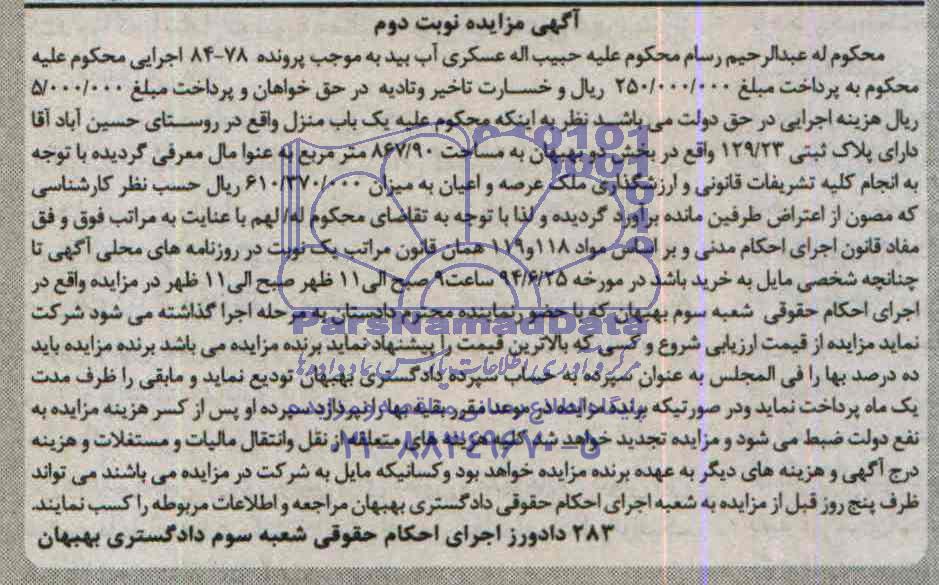 آگهی مزایده نوبت دوم
محکوم له عبدالرحیم رسام محکوم علیه حبیب اله عسکری آب بید به موجب پرونده ۷۸-۸۴ اجرایی محکوم علیه
محکوم به پرداخت مبلغ ۲۵۰/۰۰۰/۰۰۰ ریال و خسارت تاخیر وتادیه در حق خواهان و پرداخت مبلغ ۵/۰۰۰/۰۰۰
ریال هزینه اجرایی در حق دولت می باشد نظر به اینکه محکوم علیه یک باب منزل واقع در روستای حسین آباد آقا
دارای پلاک ثبتی ۱۲۹/۲۳ واقع در بخش دو بهبهان به مساحت ۸۶۷/۹۰ متر مربع به عنوا مال معرفی گردیده با توجه
به انجام کلیه تشریفات قانونی و ارزشگذاری ملک عرصه و اعیان به میزان ۶۱۰/۳۷۰/۰۰۰ ریال حسب نظر کارشناسی
که مصون از اعتراض طرفین مانده برآورد گردیده و لذا با توجه به تقاضای محکوم له/ لهم با عنایت به مراتب فوق و فق
مفاد قانون اجرای احکام مدنی و بر اساس مواد ۱۱۸و۱۱۹ همان قانون مراتب یک نوبت در روزنامه های محلی آگهی تا
چنانچه شخصی مایل به خرید باشد در مورخه ۹۴/۶/۲۵ ساعت۹ صبح الی۱۱ ظهر صبح الی۱۱ ظهر در مزایده واقع در
اجرای احکام حقوقی شعبه سوم بهبهان که با حضور نماینده محترم دادستان به مرحله اجرا گذاشته می شود شرکت
ParsNamadData
نماید مزایده از قیمت ارزیابی شروع و کسی که بالاترین قیمت را پیشنهاد نماید برنده مزایده می باشد برنده مزایده باید
ده درصد بها را فی المجلس به عنوان سپرده به حساب سپرده دادگستری بهبهان تودیع نماید و مابقی را ظرف مدت
یک ماه پرداخت نماید ودر صورتیکه برنده مزایده در موعد مقرر بقیه بها را نپردازد سپرده او پس از کسر هزینه مزایده به
نفع دولت ضبط می شود و مزایده تجدید خواهد شد کلیه هزینه های متعلقه از نقل وانتقال مالیات و مستغلات و هزینه
۰۲۱-۸۸۳۴۹۶۷۰-۵
درج آگهی و هزینه های دیگر به عهده برنده مزایده خواهد بود وکسانیکه مایل به شرکت در مزایده می باشند می تواند
ظرف پنج روز قبل از مزایده به شعبه اجرای احکام حقوقی دادگستری بهبهان مراجعه و اطلاعات مربوطه را کسب نمایند.
۲۸۳ دادورز اجرای احکام حقوقی شعبه سوم دادگستری بهبهان